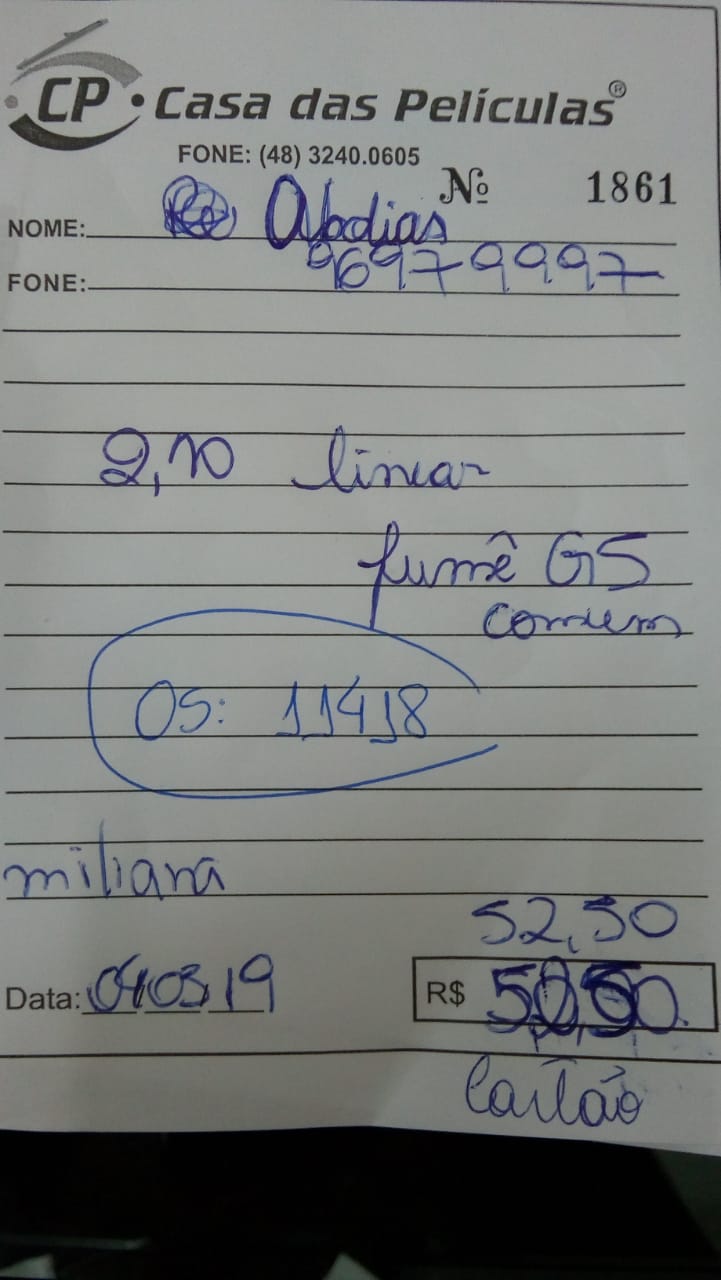 CP • Casa das Películas®
FONE: (48) 3240.0605
Nº 1861
NOME: Abdias
FONE: 96979997
2,10 linear
fumê G5
comum
OS: 11418
miliana
52,50
Data: 040319
R$
Cartão